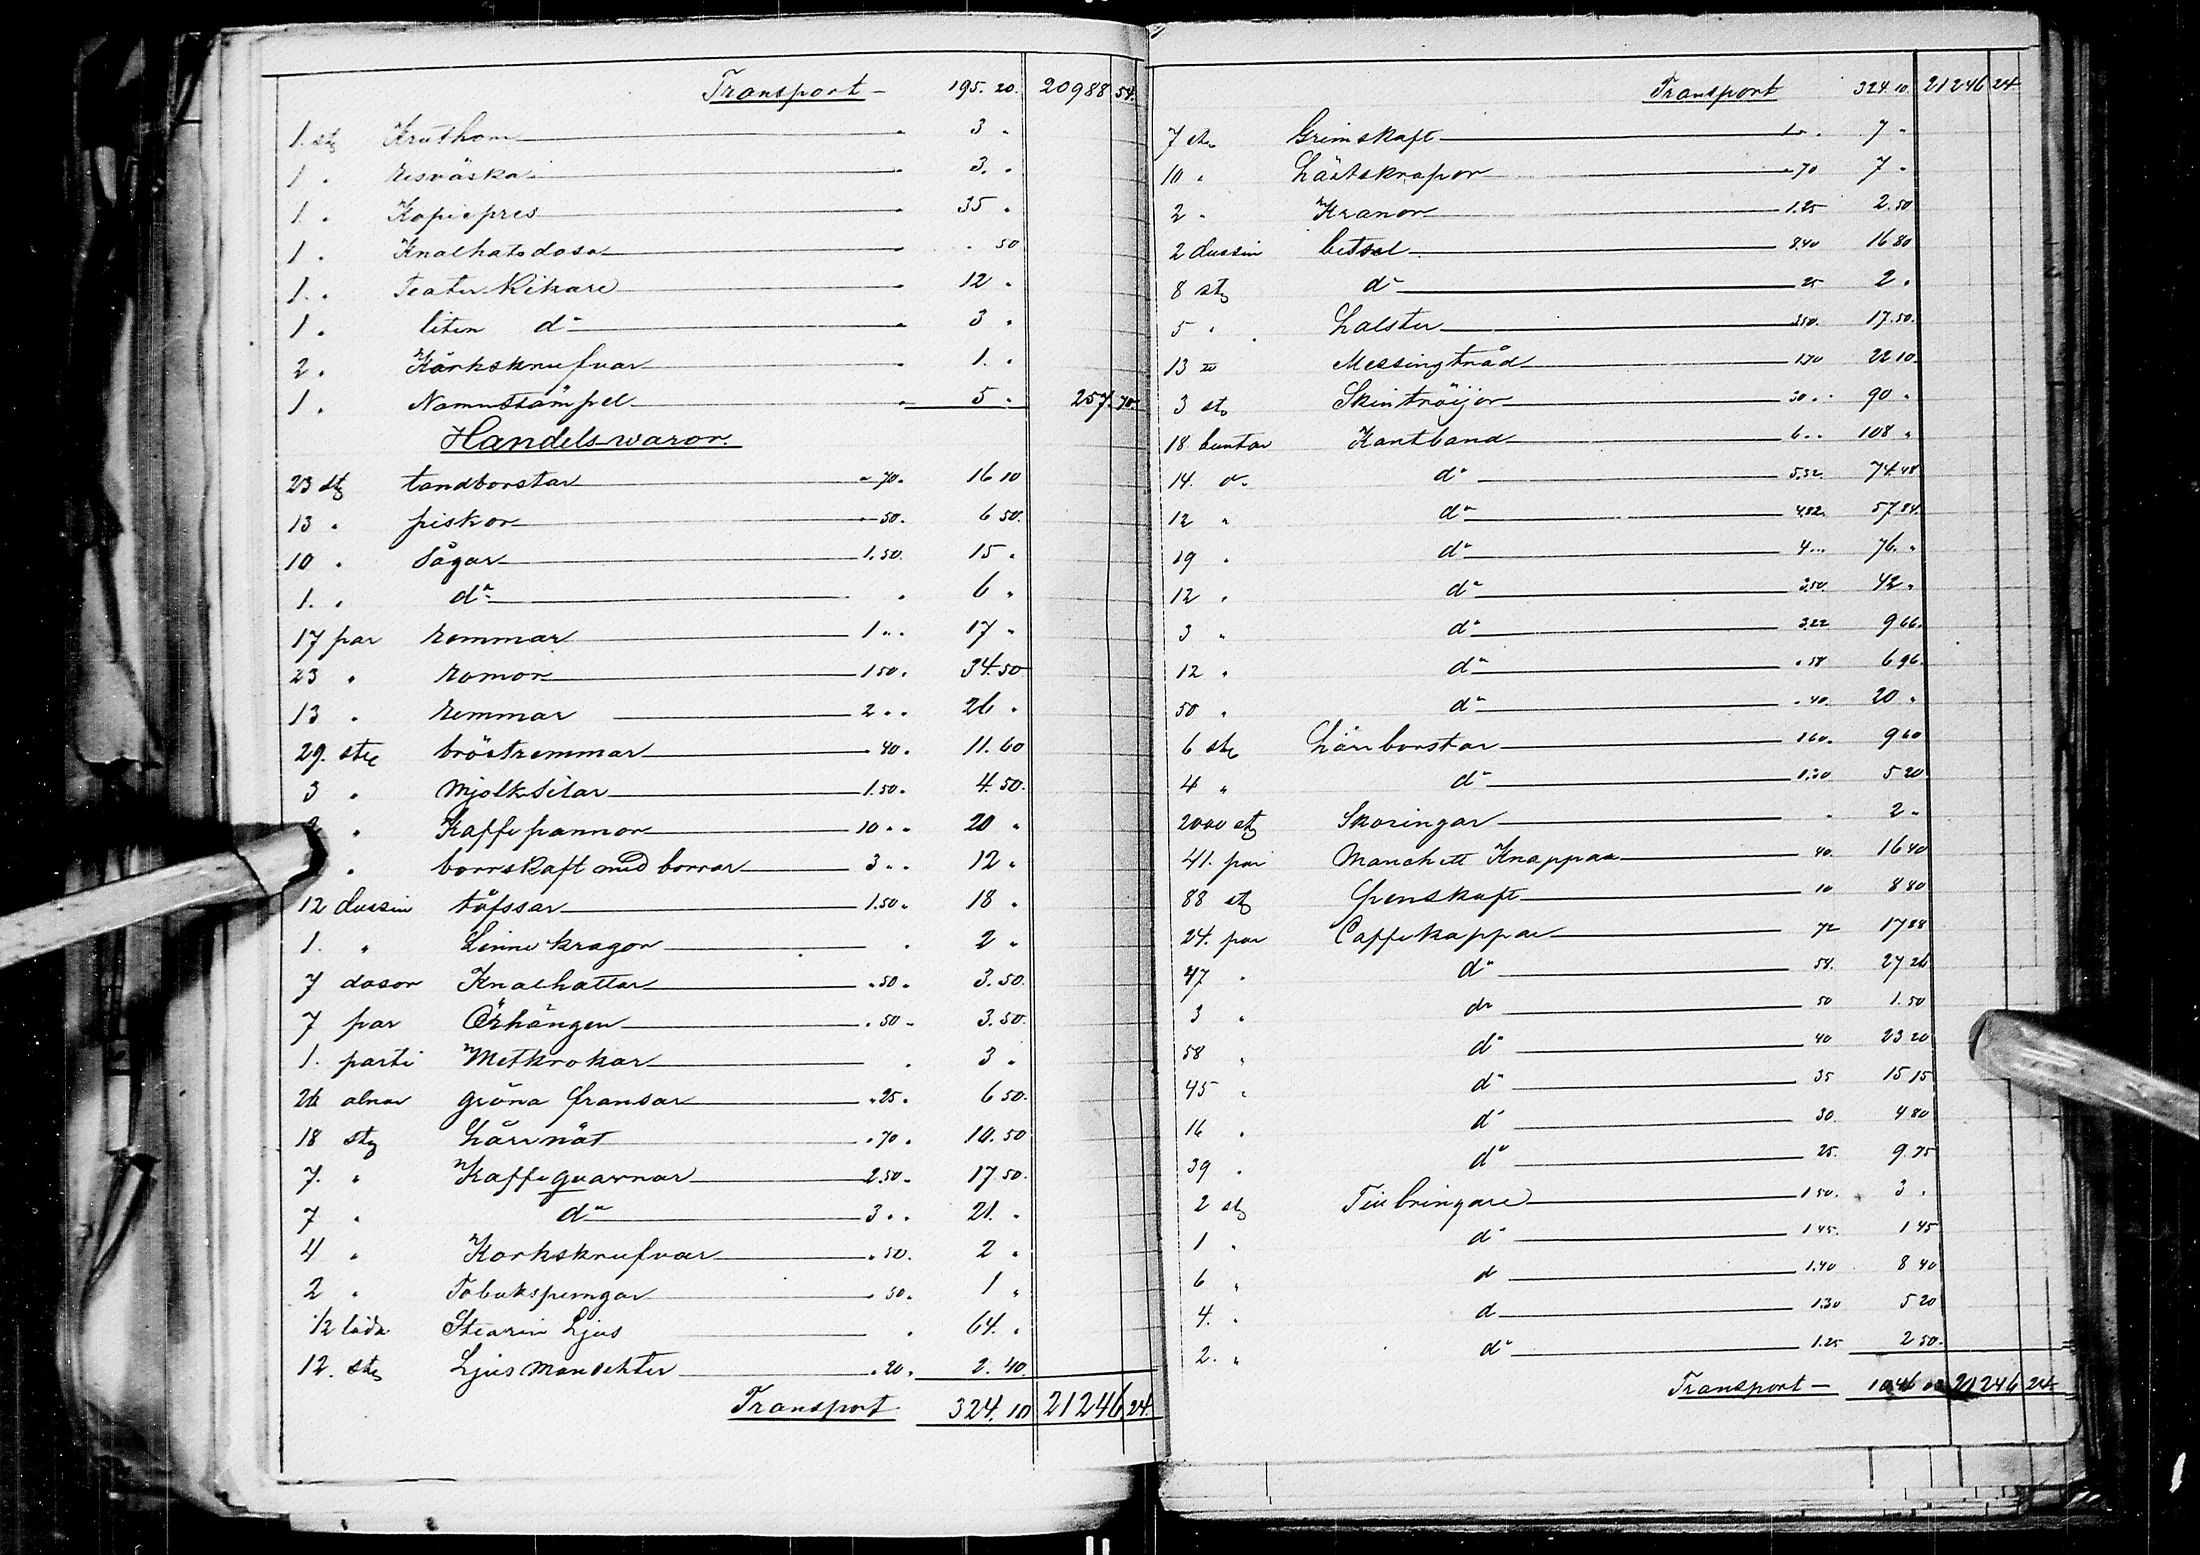 Transport - 195. 20. 20988 54.
1. st Kruthorn " 3 "
1 " resväska " 3. "
1 " Kopiepres " 35 "
1 " Knalhatsdosa " " 50
1 " Teater Kikare " 12 "
1 " liten do " 3 "
2 " Kårkskrufvar " 1. "
1 " Namnstämpel " 5 " 257. 70
Handelswaror.
23 st tandborstar " 70. 16 10
13 " piskor " 50. 6 50.
10 " Sågar 1.50. 15 "
1. " do " 6 "
17 par remmar 1 " " 17 "
23 " romor 1 50. 34.50
13 " remmar 2 " " 26 "
29. st bröstremmar " 40. 11.60
3 " Mjölksilar 1.50. 4.50.
" Kaffepannor 10 " " 20 "
" borrskaft med borrar 3 " " 12 "
12 dussin tåfssar 1.50. 18 "
1. " Linnekragor " 2 "
7 dosor Knalhattar " 50 " 3.50.
7 par Örhängen " 50 - 3.50.
1. parti Metkrokar " 3 "
26 alnar gröna fransar " 25. 6 50.
18 st hårnät " 70. 10.50
7. " Kaffequarnar 2.50. 17 50.
7 " do 3 " " 21. "
4 " Korkskrufvar " 50. 2 "
2 " Tobakspungar " 50. 1 "
1/2 låda Stearin Ljus " 64. "
12. st Ljus Manschetter " 20. 2. 40.
Transport 324. 10 21246 24.
Transport 324.10. 21246 24
7 st Grimskaft 1 " " 7 "
10 " hästskrapor " 70 7 "
2 " Kranor 1.25 2.50
2 dussin betsel 8.40 16 80
8 st do 25 2 "
5 " halster 3.50. 17.50.
13 Messingtråd 1.70 22 10
3 st Skintröijor 30 " " 90 "
18 buntar Kantband 6 " " 108 "
14. do do 5.32. 74.48
12 " do 4.82. 57.84
19 " do 4 " " 76. "
12 " do 3.50. 42 "
3 " do 3.22 9 66.
12 " do " 58 6 96.
50 " do " 40. 20 "
6 st hårborstar 1.60. 9 60
4 " do 1.30 5 20
2000 st Skoringar " 2 "
41. par Manchett Knappar 40. 16 40
88 st Penskaft 10 8 80
24. par Caffekoppar 72 17 28
47 " do 58. 27 26
3 " do 50 1.50
58 " do 40 23 20
45 " do 35 15 15
16 " do 30. 4 80
39 " do 25. 9.75
2 st Tebringare 1 50. 3 "
1 " do 1.45. 1 45
6 " do 1.40 8 40
4. " do 1.30 5 20
2. " do 1.25 2 50.
Transport - 1046 21246 24